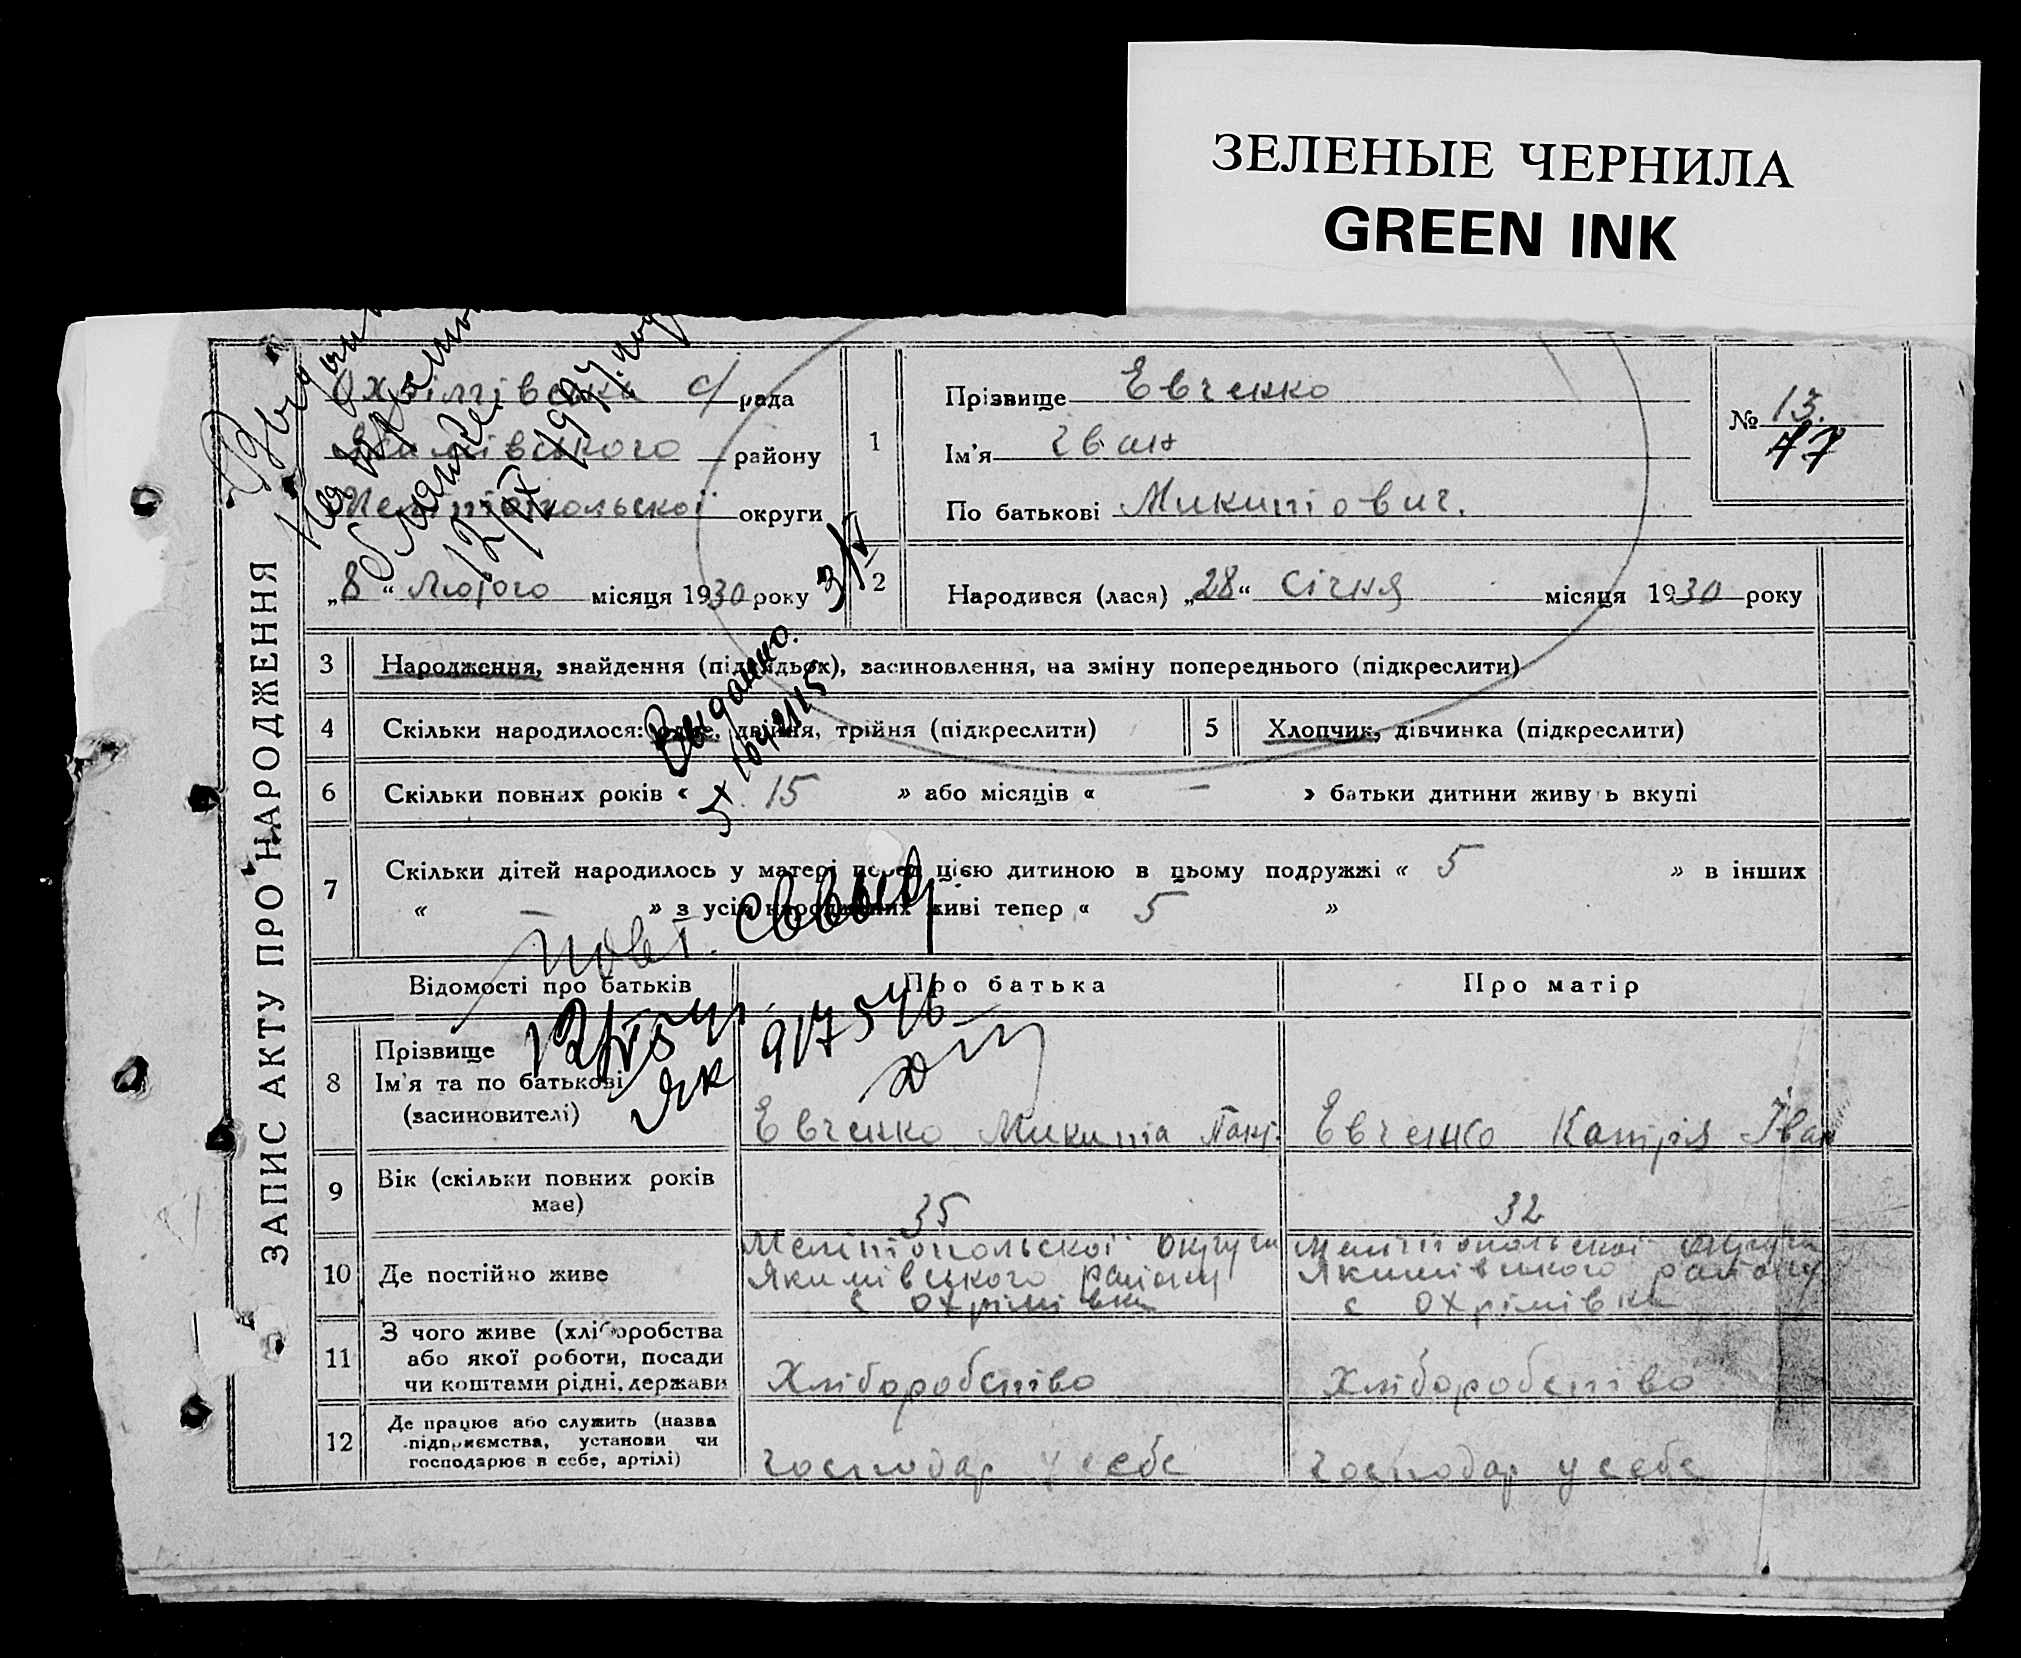 ЗЕЛЕНЫЕ ЧЕРНИЛА
GREEN INK
ЗАПИС АКТУ ПРО НАРОДЖЕННЯ
Охрімівська с/рада
Якимівського району
Мелітопольскої округи
„8“ Лютого місяця 1930 року
3/V
12/IX 1947 году
1
Прізвище Евченко
Ім'я Іван
По батькові Микитович.
№ 13.
77
2
Народився (лася) „28“ Січня місяця 1930 року
3 Народження, знайдення (підкидьох), засиновлення, на зміну попереднього (підкреслити)
4 Скільки народилося: одне, двійня, трійня (підкреслити)
5 Хлопчик, дівчинка (підкреслити)
Выданно.
6 Скільки повних років « 15 » або місяців « — » батьки дитини живуть вкупі
7 Скільки дітей народилось у матері перед цією дитиною в цьому подружжі « 5 » в інших
« — » з усіх народжених живі тепер « 5 »
Повт.
Відомості про батьків
Про батька
Про матір
ЯК 917546
8 Прізвище
Ім'я та по батькові
(засиновителі)
Евченко Микита
Евченко Катря Іван
9 Вік (скільки повних років має)
35
32
10 Де постійно живе
Мелітопольскої округи
Якимівського району
с Охрімівка
Мелітопольскої округи
Якимівського району
с Охрімівка
11 З чого живе (хліборобства
або якої роботи, посади
чи коштами рідні, держави
Хліборобство
Хліборобство
12 Де працює або служить (назва
підприємства, установи чи
господарює в себе, артілі)
господар у себе
господар у себе